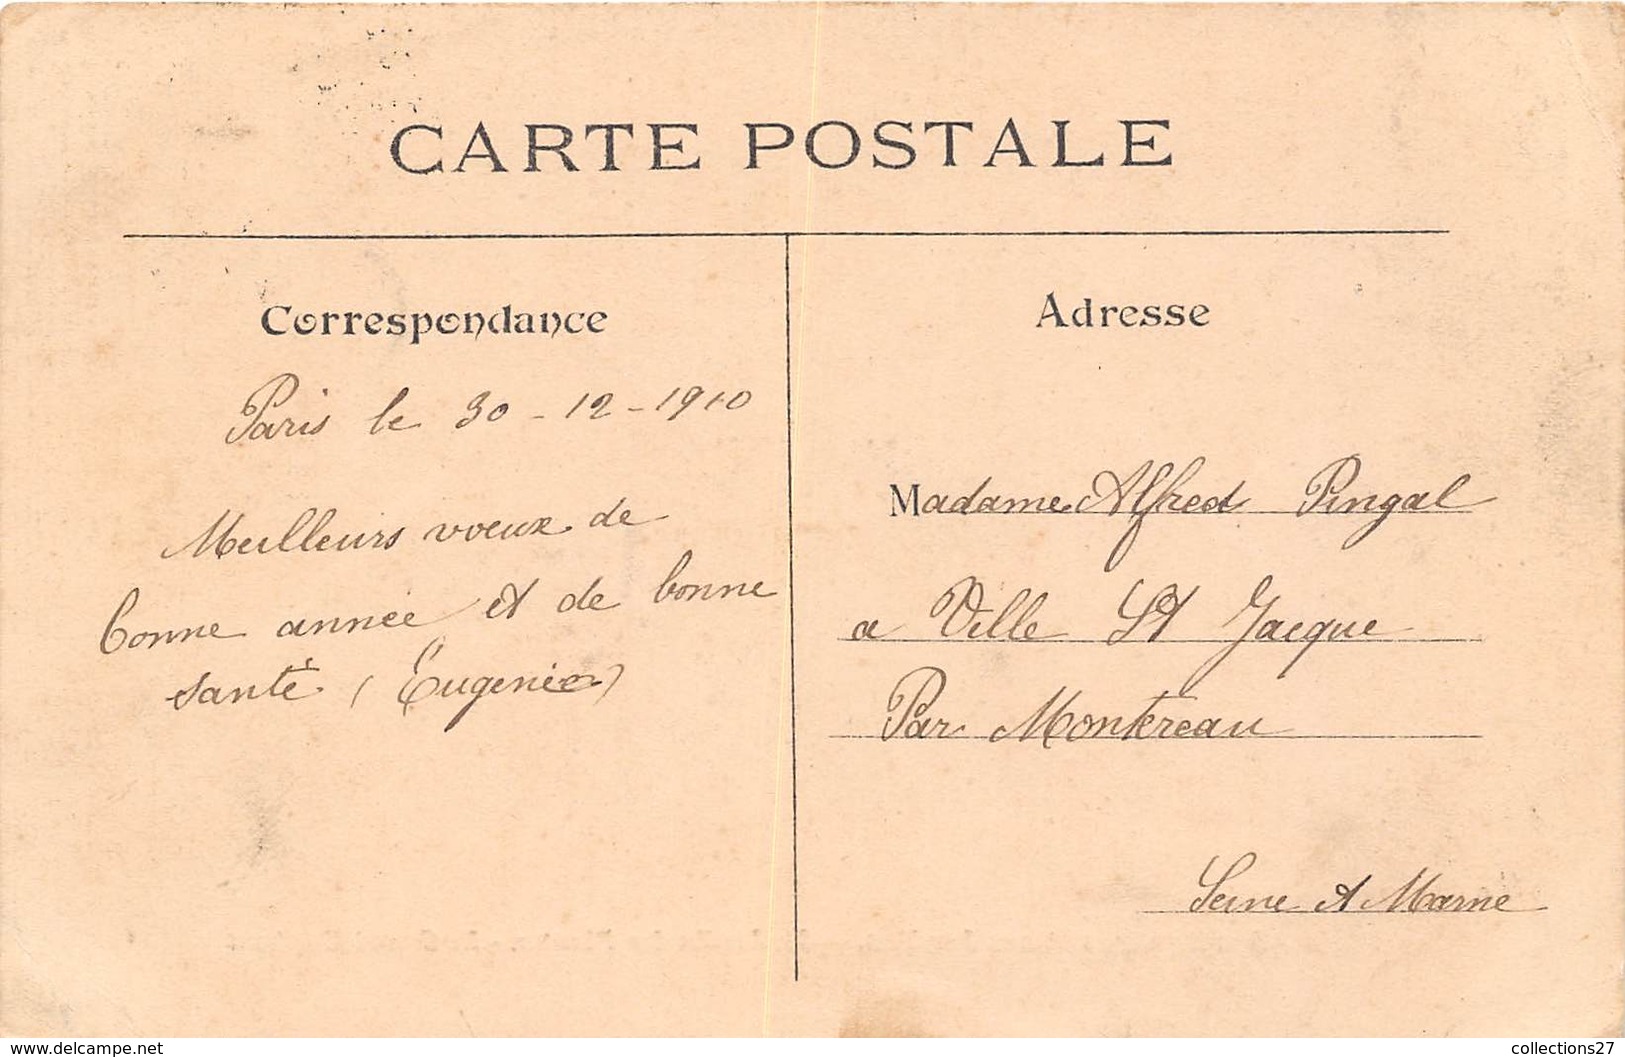 CARTE POSTALE
Correspondance
Paris le 30 - 12 - 1910
Meilleurs voeux de
bonne année et de bonne
santé (Eugenie)
Adresse
Madame Alfred Pingal
a Ville St Jacque
Par Montereau
Seine et Marne
www.delcampe.net
collections27